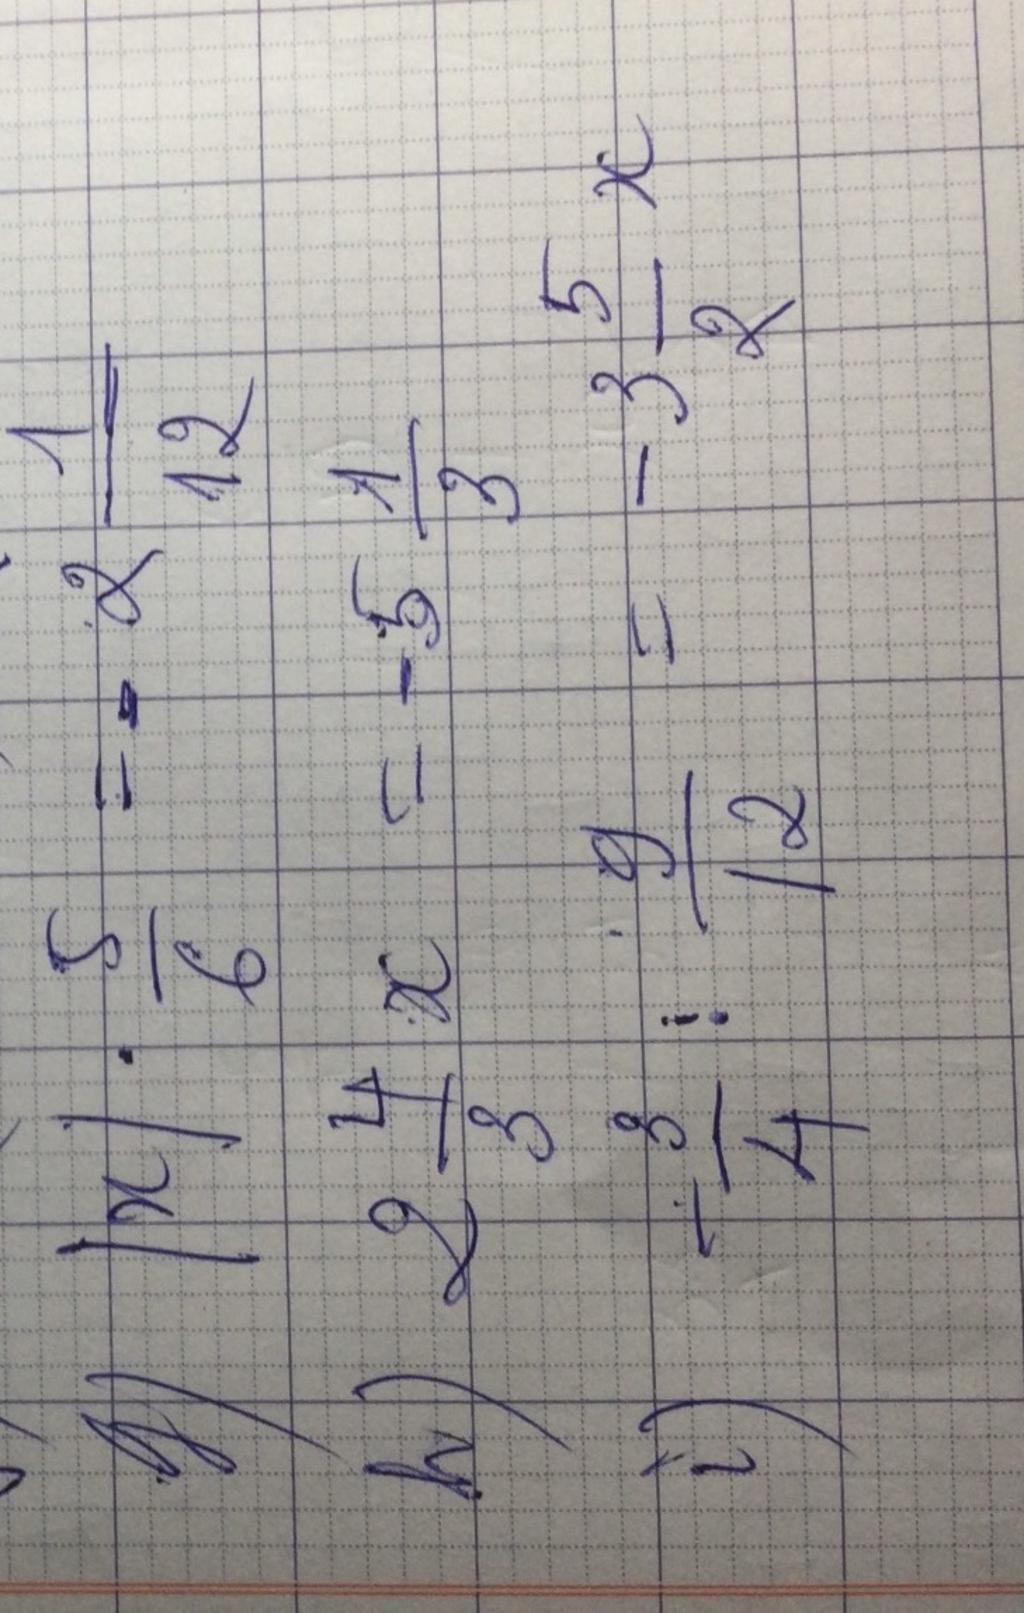 g) |x| · 5/6 = - 2 1/12
h) 2 4/3 x = - 5 1/3
i) - 3/4 : 9/12 = - 3 5/2 x